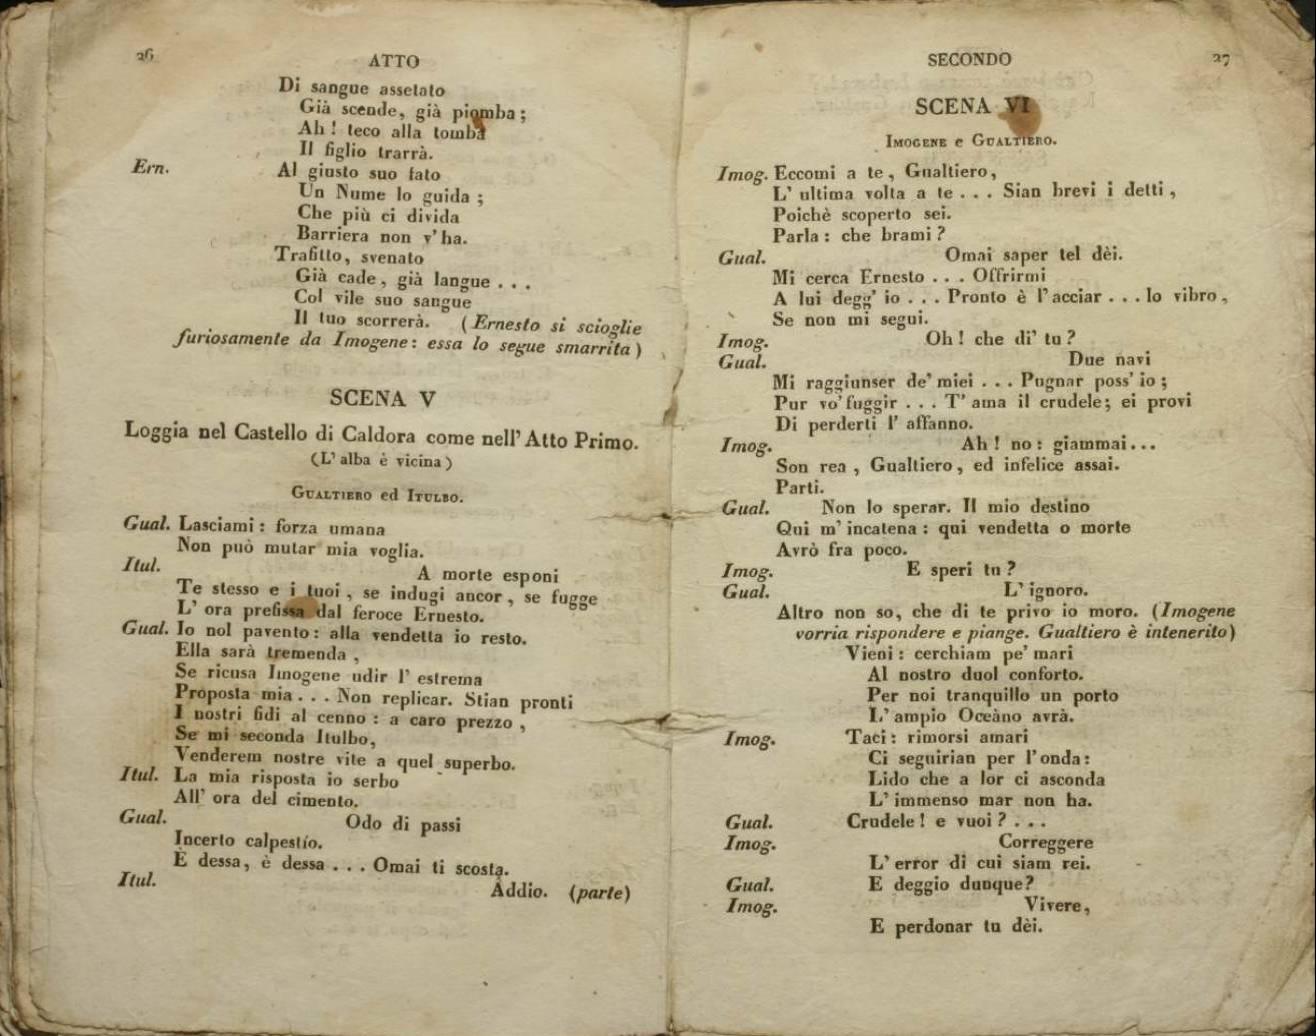 26
ATTO
Di sangue assetato
Già scende, già piomba;
Ah! teco alla tomba
Il figlio trarrà.
Ern. Al giusto suo fato
Un Nume lo guida;
Che più ci divida
Barriera non v'ha.
Trafitto, svenato
Già cade, già langue . . .
Col vile suo sangue
Il tuo scorrerà. (Ernesto si scioglie
furiosamente da Imogene: essa lo segue smarrita)
SCENA V
Loggia nel Castello di Caldora come nell' Atto Primo.
(L' alba è vicina)
GUALTIERO ed ITULBO.
Gual. Lasciami: forza umana
Non può mutar mia voglia.
Itul. A morte esponi
Te stesso e i tuoi, se indugi ancor, se fugge
L' ora prefissa dal feroce Ernesto.
Gual. Io nol pavento: alla vendetta io resto.
Ella sarà tremenda,
Se ricusa Imogene udir l' estrema
Proposta mia . . . Non replicar. Stian pronti
I nostri fidi al cenno: a caro prezzo,
Se mi seconda Itulbo,
Venderem nostre vite a quel superbo.
Itul. La mia risposta io serbo
All' ora del cimento.
Gual. Odo di passi
Incerto calpestío.
È dessa, è dessa . . . Omai ti scosta.
Itul. Addio. (parte)
SECONDO
27
SCENA VI
IMOGENE e GUALTIERO.
Imog. Eccomi a te, Gualtiero,
L' ultima volta a te . . . Sian brevi i detti,
Poichè scoperto sei.
Parla: che brami?
Gual. Omai saper tel dèi.
Mi cerca Ernesto . . . Offrirmi
A lui degg' io . . . Pronto è l' acciar . . . Io vibro,
Se non mi segui.
Imog. Oh! che di' tu?
Gual. Due navi
Mi raggiunser de' miei . . . Pugnar poss' io;
Pur vo' fuggir . . . T' ama il crudele; ei provi
Di perderti l' affanno.
Imog. Ah! no: giammai...
Son rea, Gualtiero, ed infelice assai.
Parti.
Gual. Non lo sperar. Il mio destino
Qui m' incatena: qui vendetta o morte
Avrò fra poco.
Imog. E speri tu?
Gual. L' ignoro.
Altro non so, che di te privo io moro. (Imogene
vorria rispondere e piange. Gualtiero è intenerito)
Vieni: cerchiam pe' mari
Al nostro duol conforto.
Per noi tranquillo un porto
L' ampio Oceàno avrà.
Imog. Taci: rimorsi amari
Ci seguirian per l' onda:
Lido che a lor ci asconda
L' immenso mar non ha.
Gual. Crudele! e vuoi? . . .
Imog. Correggere
L' error di cui siam rei.
Gual. E deggio dunque?
Imog. Vivere,
E perdonar tu dèi.